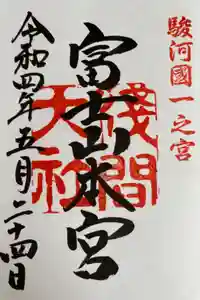 駿河國一之宮
富士山本宮
淺間大社
令和四年五月二十四日